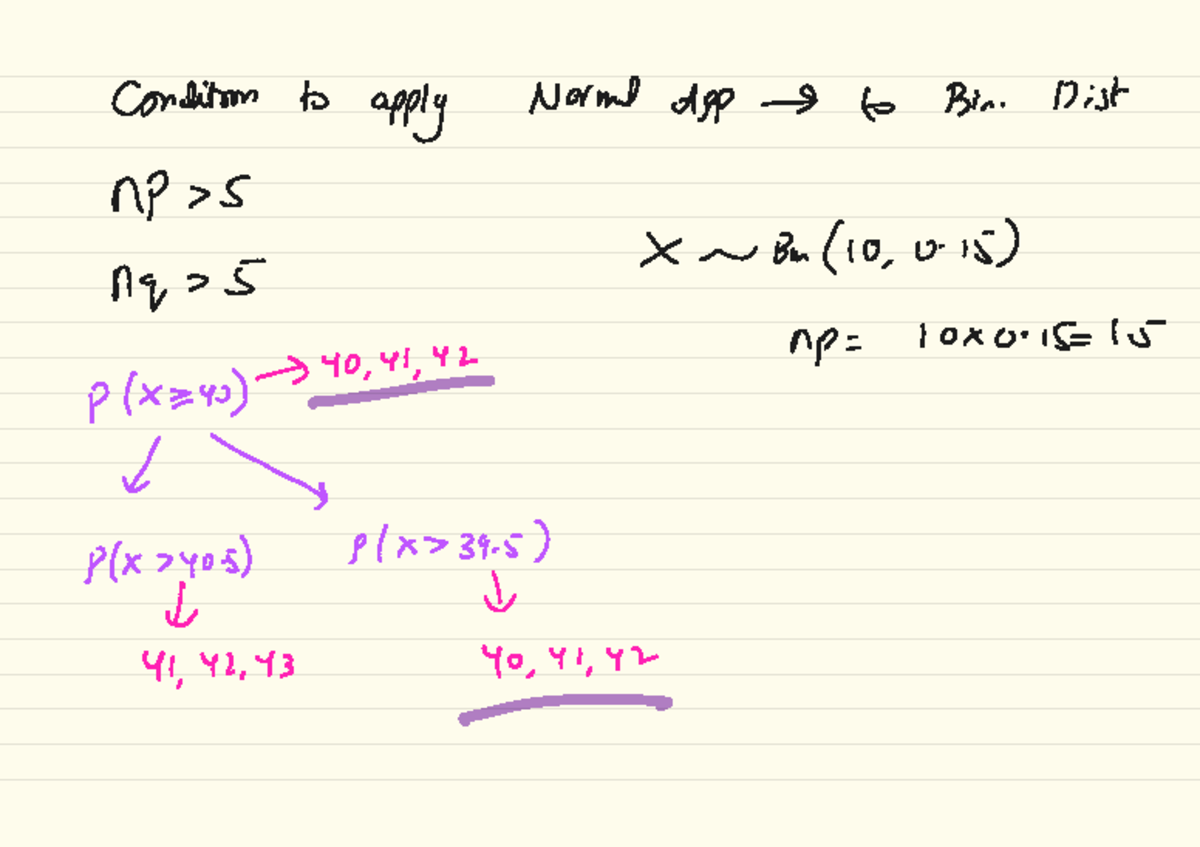 Condition to apply Normal App → to Bin. Dist
np > 5
X ~ Bin (10, 0.15)
nq > 5
np = 10 x 0.15 = 1.5
→ 40, 41, 42
P(X ≥ 40)
P(X > 40.5) P(X > 39.5)
41, 42, 43 40, 41, 42